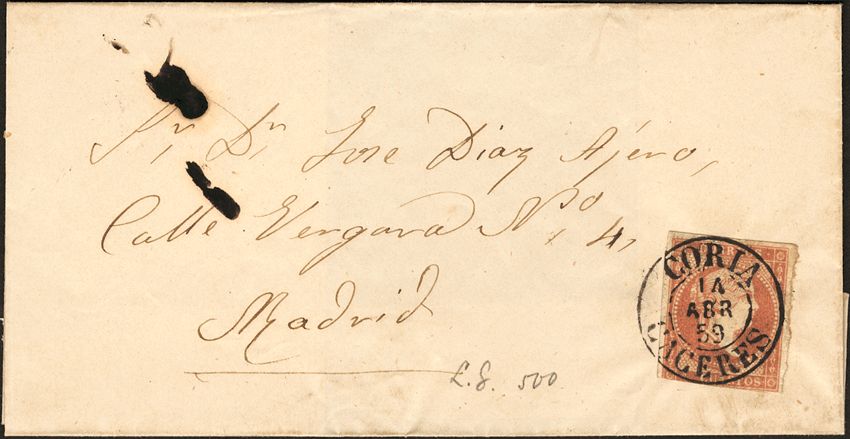 Sr. Dn. Jose Diaz Ajero,
Calle Vergara No. 4,
Madrid
L.G. 500
CORIA
14
ABR
59
CACERES